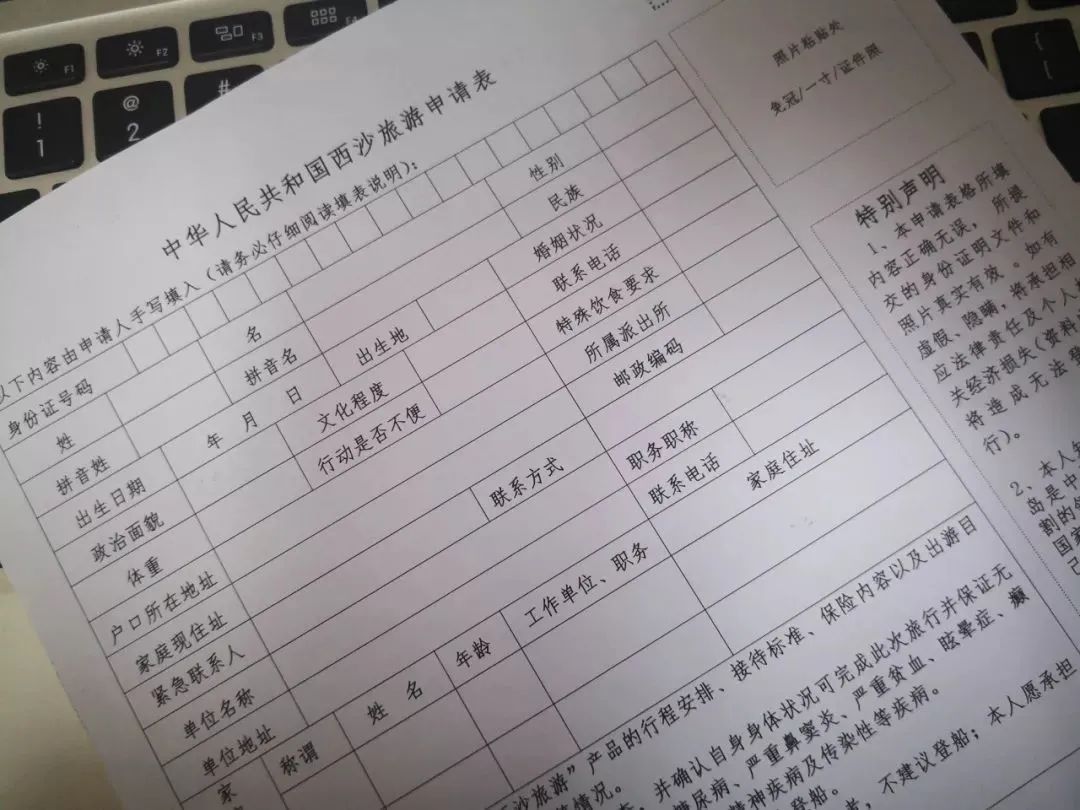 F1
F2
F3
F4
!
1
@
2
#
{
[
中华人民共和国西沙旅游申请表
以下内容由申请人手写填入（请务必仔细阅读填表说明）：
照片粘贴处
免冠/一寸/证件照
身份证号码
姓 名 性别
拼音姓 拼音名 民族
出生日期 年 月 日 出生地 婚姻状况
政治面貌 文化程度 联系电话
体重 行动是否不便 特殊饮食要求
户口所在地址 所属派出所
家庭现住址 邮政编码
紧急联系人 联系方式
单位名称 职务职称
单位地址 联系电话
家 称谓 姓 名 年龄 工作单位、职务 家庭住址
特别声明
1、本申请表格所填
内容正确无误，所提
交的身份证明文件和
照片真实有效。如有
虚假、隐瞒，将承担相
应法律责任及个人
关经济损失(资料
将造成无法
行)。
2、本人
岛是中
割的
国家
沙旅游”产品的行程安排、接待标准、保险内容以及出游目
情况。
，并确认自身身体状况可完成此次旅行并保证无
糖尿病、严重鼻窦炎、严重贫血、眩晕症、癫
精神疾病及传染性等疾病。
登船。
不建议登船；本人愿承担